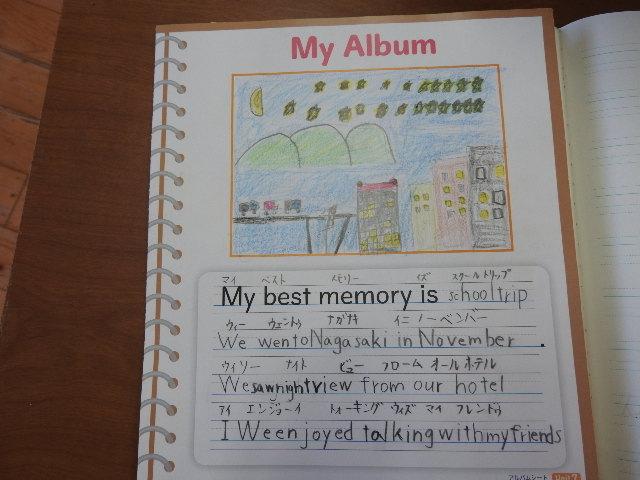 My Album
マイ ベスト メモリー イズ スクールトリップ
My best memory is schooltrip
ウィー ウェントゥ ナガサキ イニ ノーベンバー
We wentoNagasaki in November.
ウィソー ナイト ビュー フローム オールホテル
Wesawnightview from our hotel
アイ エンジョーイ トーキング ウィズ マイ フレンドゥ
I Weenjoyed talkingwithmyfriends
アルバムシート Unit 7